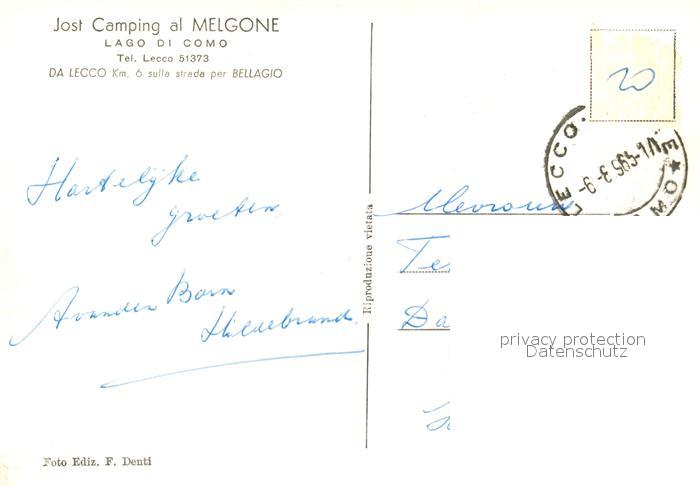 Jost Camping al MELGONE
LAGO DI COMO
Tel. Lecco 51373
DA LECCO Km. 6 sulla strada per BELLAGIO
20
LECCO
Hartelijke
groeten
A vanden Born
Hildebrand.
Riproduzione vietata
Mevrouw
Te
Da
privacy protection
Datenschutz
Foto Ediz. F. Denti